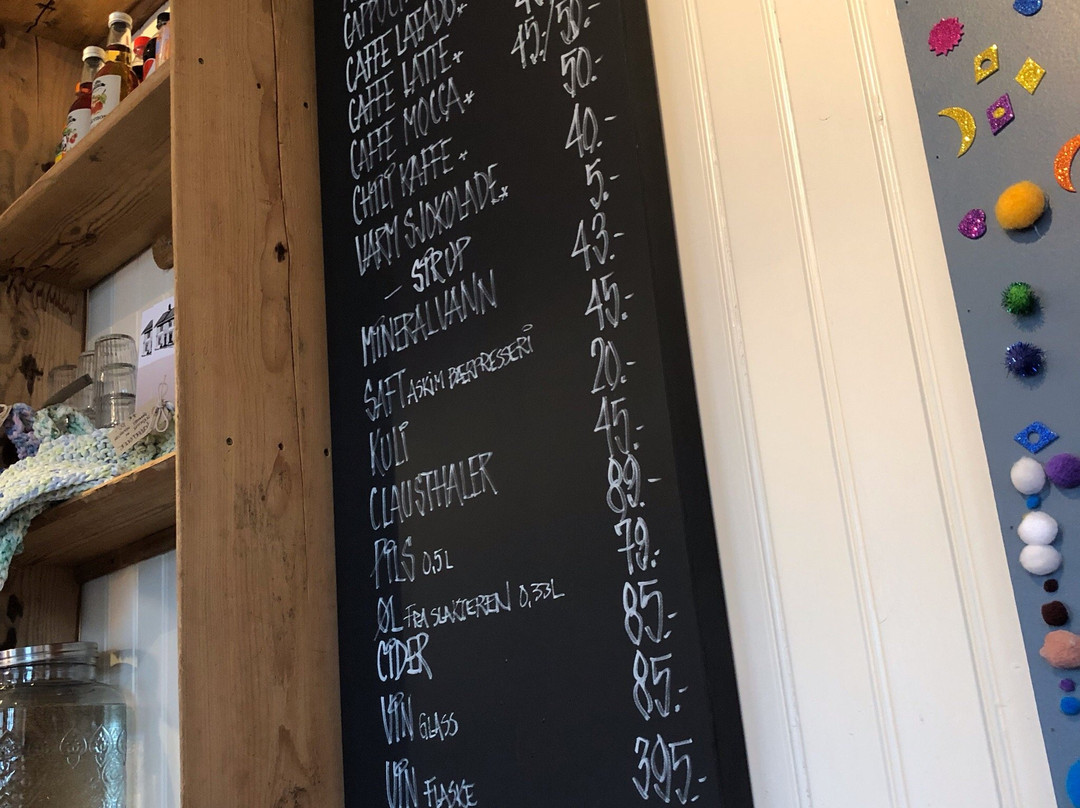 CAFFE LATTE*
CAFFE MOCCA* 45.-/50.-
CHILI KAFFE * 50.-
VARM SJOKOLADE* 40.-
– SIRUP 5.-
MINERALVANN 43.-
SAFT ASKIM BÆRPRESSERI 45.-
KULI 20.-
CLAUSTHALER 45.-
PILS 0,5L 89.-
ØL FRA SLAKTEREN 0,33L 79.-
CIDER 85.-
VIN GLASS 85.-
VIN FLASKE 395.-